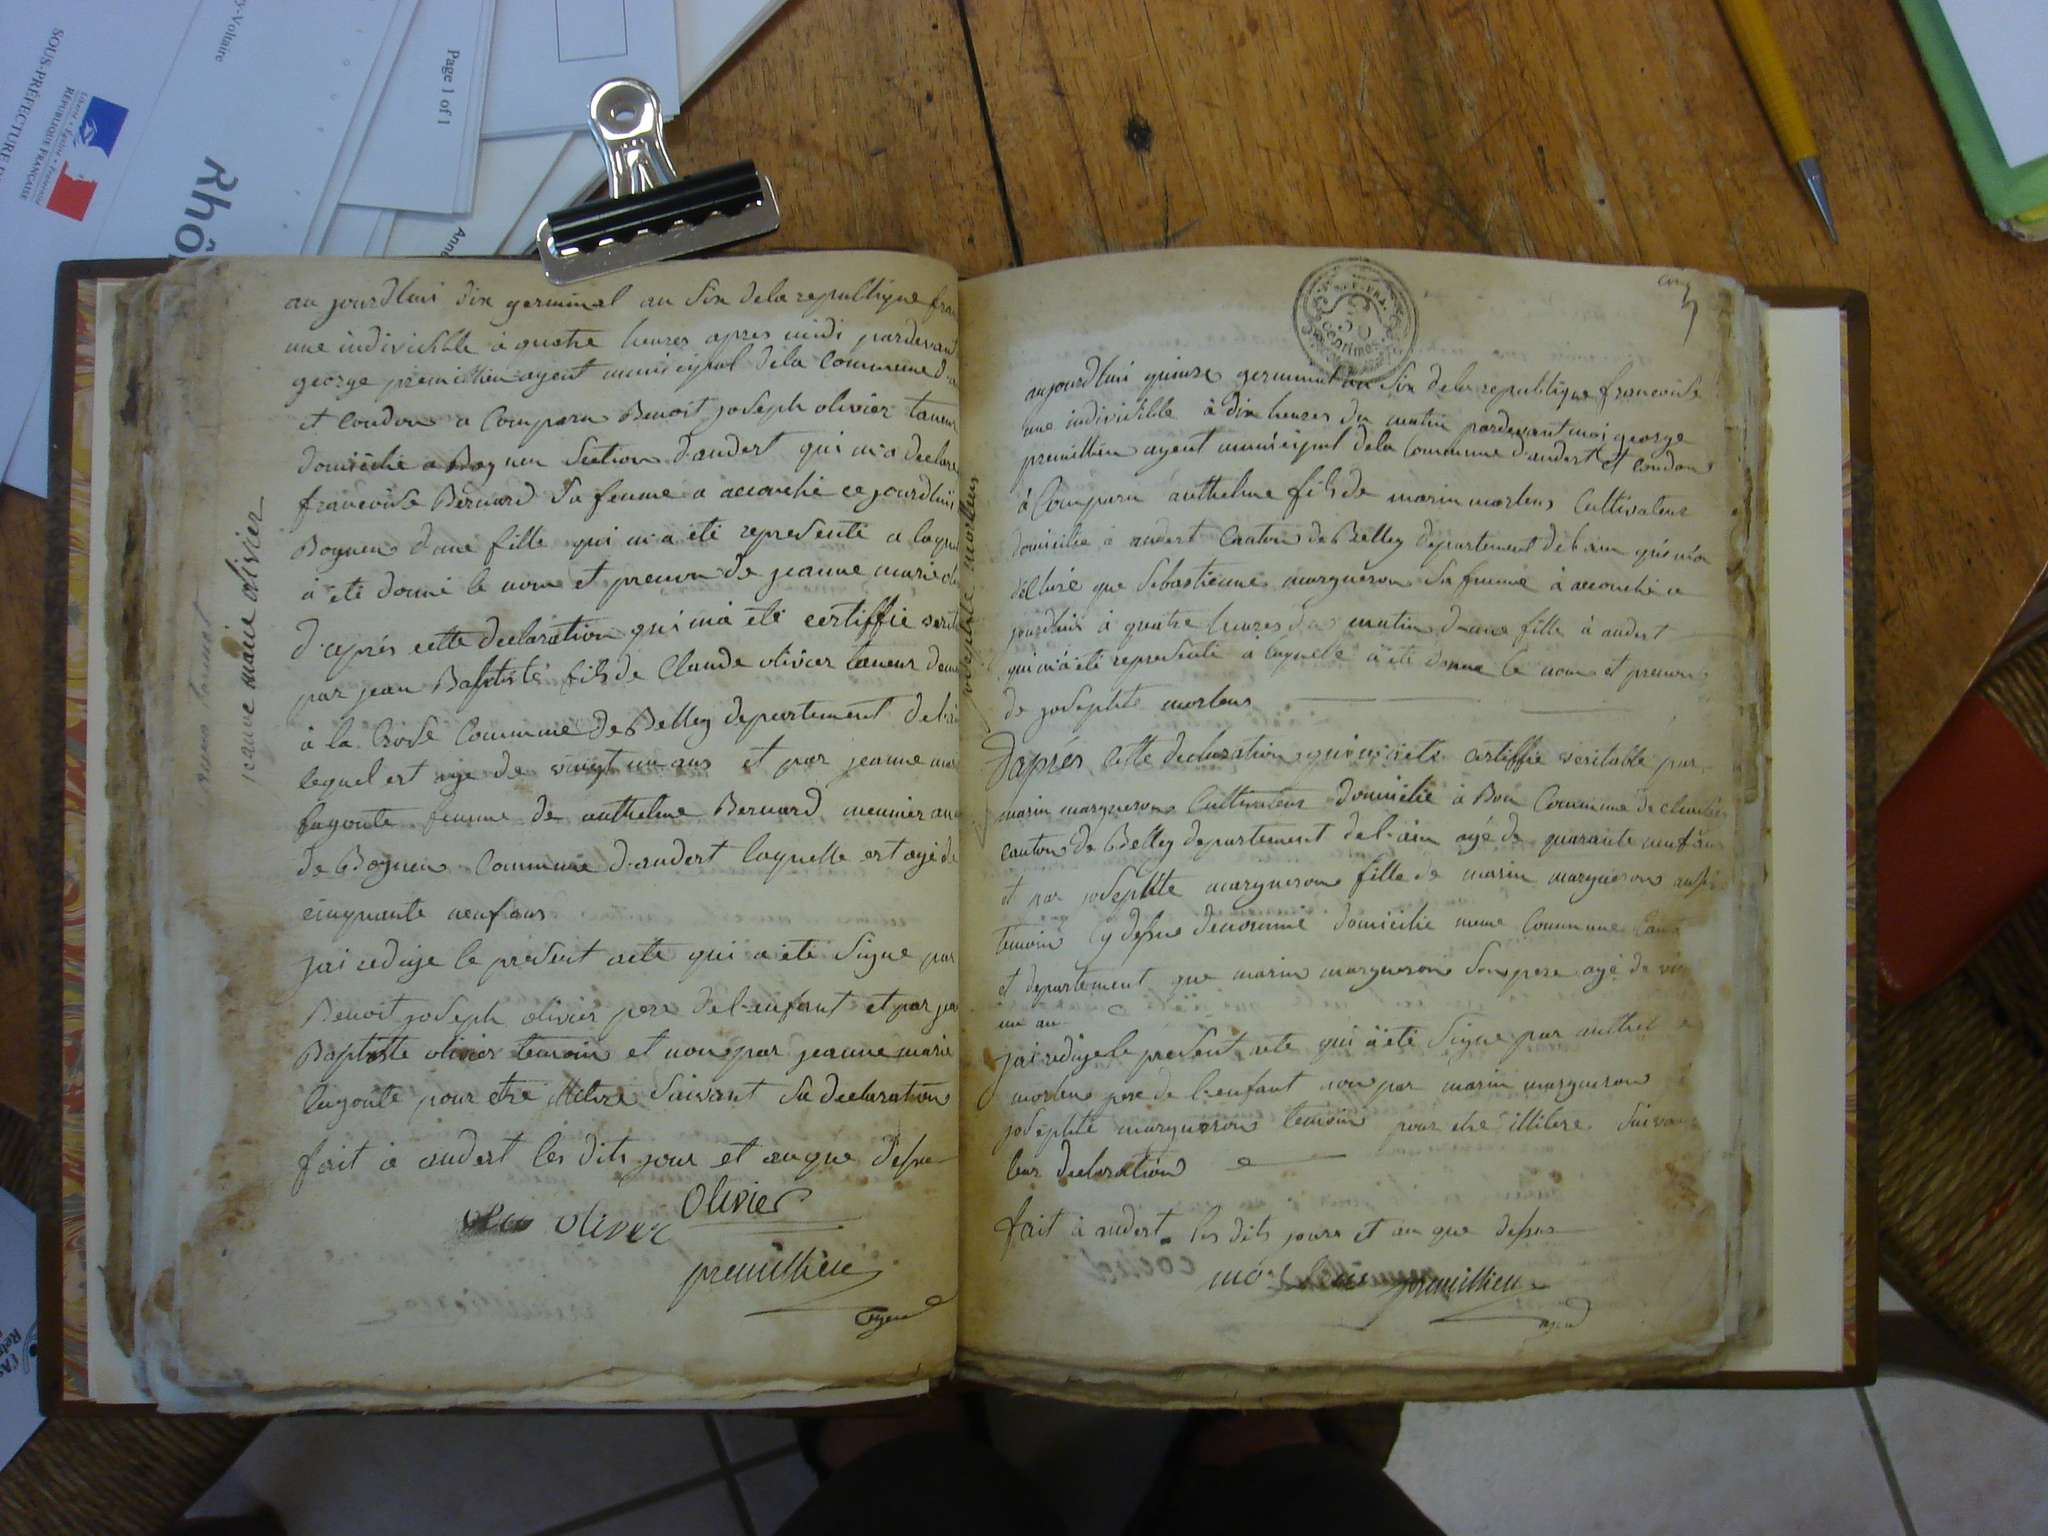 SOUS-PRÉFECTURE
RÉPUBLIQUE FRANÇAISE
y-Voltaire
Rhô
Page 1 of 1
Ann
jeanne marie olivier
au jourdhui dix germinal an Six dela republique fran
une indivisible à quatre heures apres midi pardevant
george premillieu agent municipal dela Commune d'a
et Condon a Comparu Benoit joseph olivier taneur
domicilié a Bognen Section d'andert qui m'a declaré
francoise Bernard Sa femme a accouché ce jourdhui
Bognen d'une fille qui m'a eté representé a laque
a été donné le nom et prenom de jeanne marie oli
d'aprés cette declaration qui m'a eté certiffié verit
par jean Baptiste fils de Claude olivier taneur dem
à la Commune de Belley departement del'
lequel est agé de vingt un ans et par jeanne mar
femme de anthelme Bernard meunier au
de Bognen Commune d'andert laquelle est agé de
cinquante neuf ans
jai redigé le present acte qui a été Signé par
Benoit joseph olivier pere del'enfant et par jea
Baptiste olivier temoin et non par jeanne marie
pour etre Suivant Sa declaration
fait à andert les dits jour et an que dessu
oliver Olivier
premillieu
agent
josephte mortens
cinq
5
50
aujourdhui quinze germinal an Six dela republique francoise
une indivisible à dix heures du matin pardevant moi george
premillieu agent municipal dela Commune d'andert et Condon
à Comparu anthelme fils de marin mortens Cultivateur
domicilié à andert Canton de Belley departement del'ain qui m'a
declaré que Sebastienne margueron Sa femme à accouché ce
jourdhui à quatre heures du matin d'une fille à andert
qui m'a été representé à laquelle à été donné le nom et prenom
de josephte mortens
D'aprés Cette declaration qui m'a été certiffié veritable par
marin margueron Cultivateur domicilié à Bon Commune de
canton de Belley departement del'ain agé de quarante neuf ans
et par josephte margueron fille de marin margueron
temoin cy dessu denommé domicilié meme Commune Can
et departement que marin margueron Son pere agé de vin
un an
jai redigé le present acte qui à été Signé par anthel
morten pere de l'enfant non par marin margueron
josephte margueron temoin pour etre illitere Suivan
leur declaration
fait à andert les dits jours et an que dessus
premillieu
agent